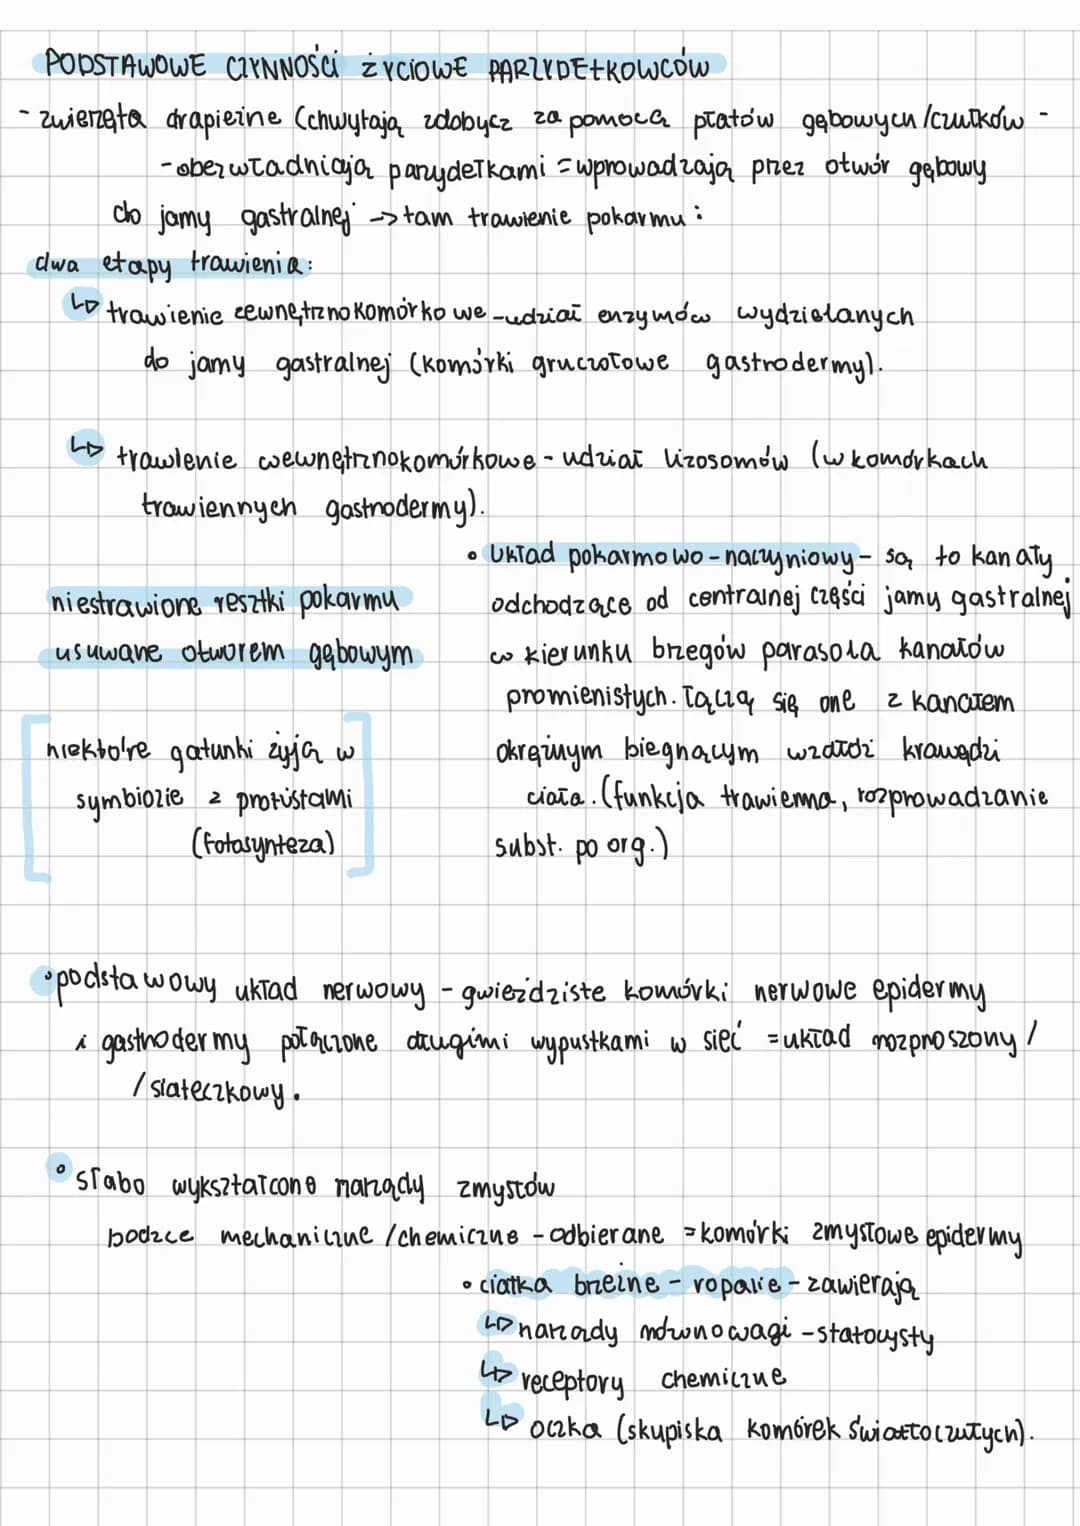 PODSTAWOWE CZYNNOŚCI ŻYCIOWE PARZYDEŁKOWCÓW
- zwierzęta drapieżne (chwytają zdobycz za pomocą płatów gębowych/czułków -
- obezwładniają parzydełkami = wprowadzają przez otwór gębowy
do jamy gastralnej -> tam trawienie pokarmu:
dwa etapy trawienia:
↳ trawienie zewnętrznokomórkowe - udział enzymów wydzielanych
do jamy gastralnej (komórki gruczołowe gastrodermy).
↳ trawienie wewnętrznokomórkowe - udział lizosomów (w komórkach
trawiennych gastrodermy).
niestrawione resztki pokarmu
usuwane otworem gębowym
niektóre gatunki żyją w
symbiozie z protistami
(fotosynteza)
• układ pokarmowo-naczyniowy - są to kanały
odchodzące od centralnej części jamy gastralnej
w kierunku brzegów parasola kanałów
promienistych. Łączą się one z kanałem
okrężnym biegnącym wzdłóż krawędzi
ciała. (funkcja trawienna, rozprowadzanie
subst. po org.)
• podstawowy układ nerwowy - gwieździste komórki nerwowe epidermy
i gastrodermy połączone długimi wypustkami w sieć = układ rozproszony /
/ siateczkowy.
• słabo wykształcone narządy zmysłów
bodźce mechaniczne / chemiczne - odbierane = komórki zmysłowe epidermy
• ciałka brzeżne - ropalie - zawierają
↳ narządy równowagi - statocysty
↳ receptory chemiczne
↳ oczka (skupiska komórek światłoczułych).